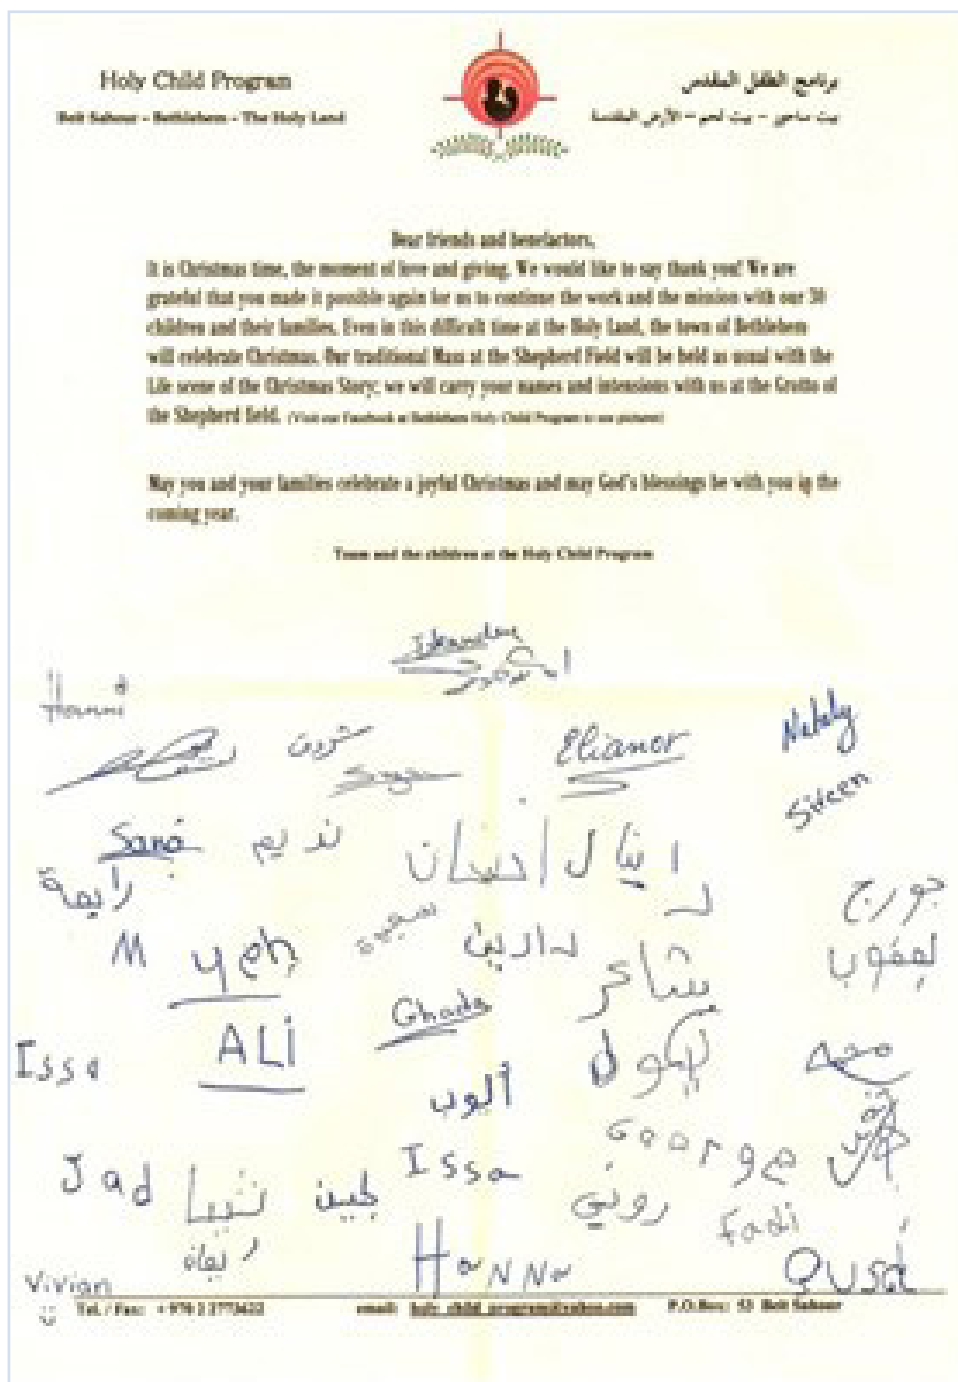 Holy Child Program
Beit Sahour - Bethlehem - The Holy Land
برنامج الطفل المقدس
بيت ساحور - بيت لحم - الأرض المقدسة
Dear friends and benefactors,
It is Christmas time, the moment of love and giving. We would like to say thank you! We are
grateful that you made it possible again for us to continue the work and the mission with our 30
children and their families. Even in this difficult time at the Holy Land, the town of Bethlehem
will celebrate Christmas. Our traditional Mass at the Shepherd Field will be held as usual with the
Life scene of the Christmas Story; we will carry your names and intensions with us at the Grotto of
the Shepherd field. (Visit our Facebook at Bethlehem Holy Child Program to see pictures)
May you and your families celebrate a joyful Christmas and may God's blessings be with you in the
coming year.
Team and the children at the Holy Child Program
Iskandar
Hanni
Elianor
Nataly
Sireen
Sana
نديم
جورج
دارين
شاكر
يعقوب
Ghada
ALI
Issa
George
Jad
Issa
روني
fadi
Hanna
Qusai
Vivian
Tel. / Fax: +970 2 2773622 email: holy_child_program@yahoo.com P.O.Box: 53 Beit Sahour